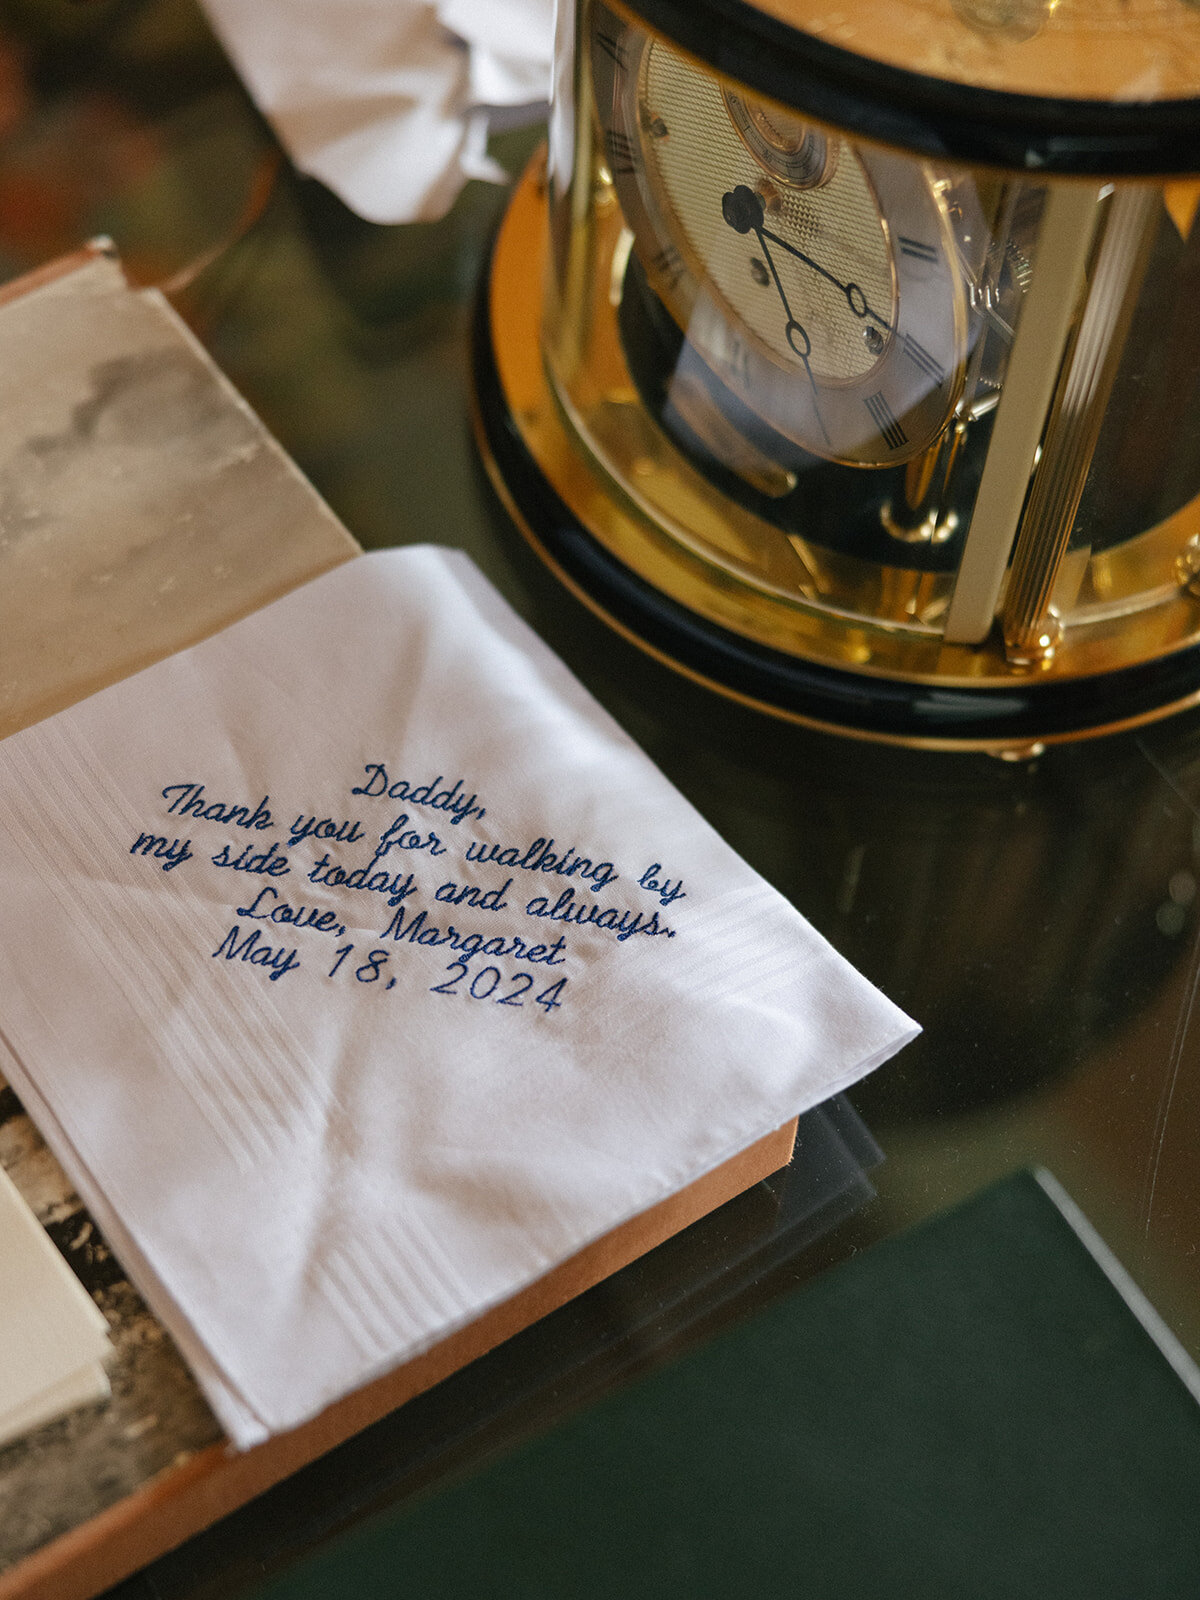 II
III
IIII
Daddy,
Thank you for walking by
my side today and always.
Love, Margaret
May 18, 2024